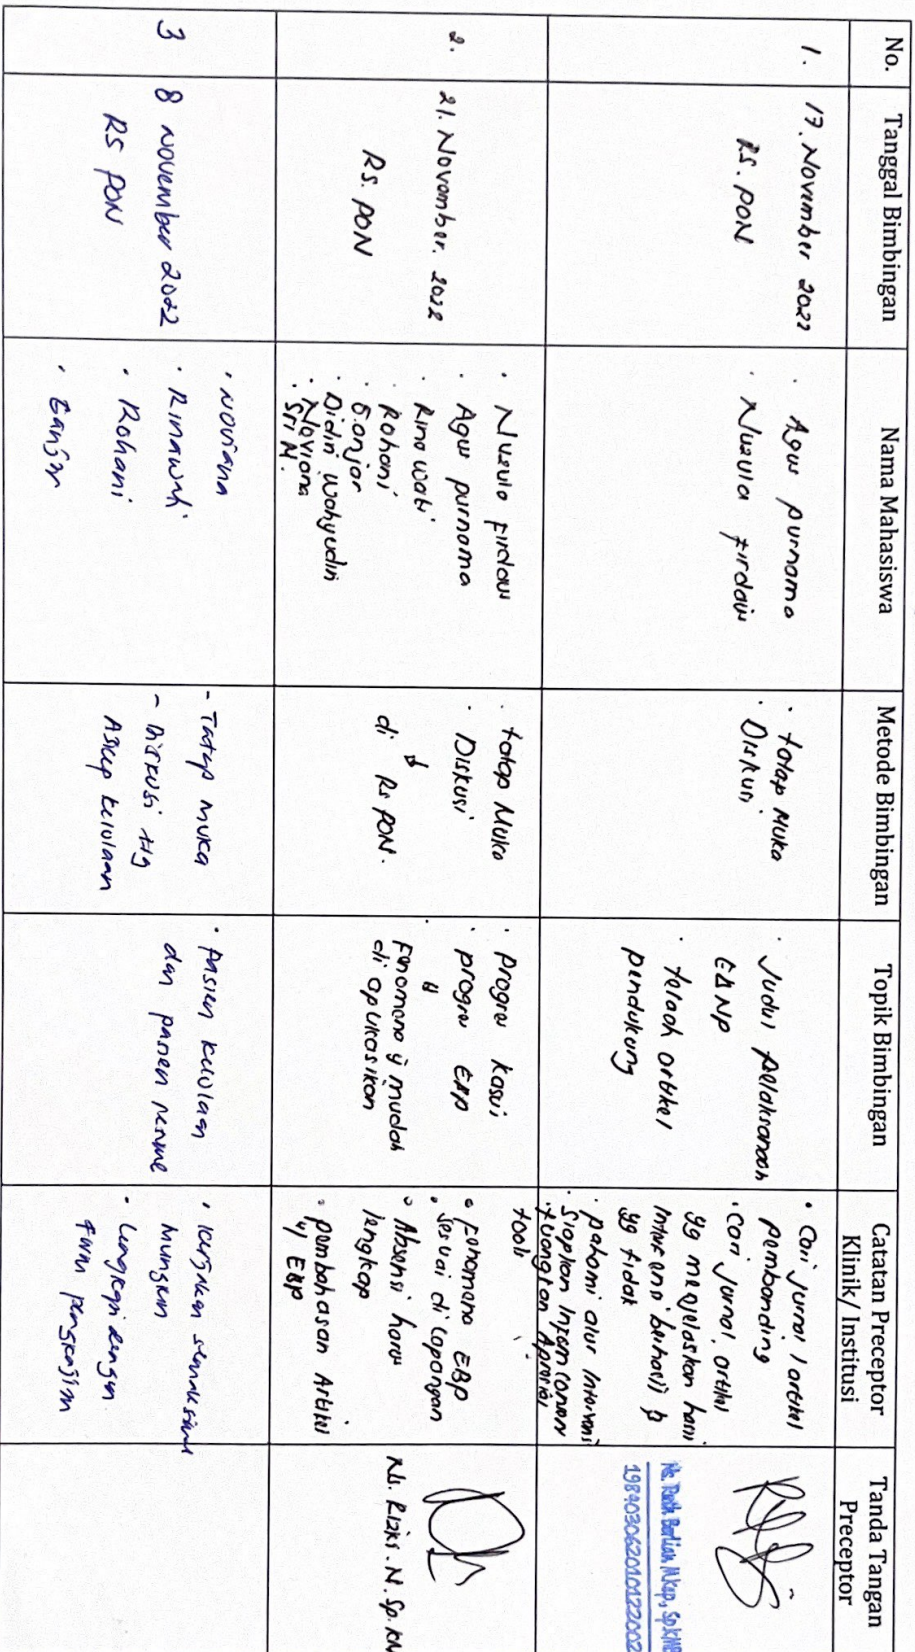 No.
Tanggal Bimbingan
Nama Mahasiswa
Metode Bimbingan
Topik Bimbingan
Catatan Preceptor
Klinik/ Institusi
Tanda Tangan
Preceptor
1.
17. November 2022
RS. PON
· Agus purnama
· Nuzula Firdaus
· tatap Muka
· Diskusi
· Judul pelaksanaan
EBNP
· telaah artikel
pendukung
· Cari jurnal / artikel
pembanding
· Cari jurnal artikel
yg menjelaskan hasil
intervensi berhasil &
yg tidak
· pahami alur intervensi
· Siapkan Infom Consen
Ns. Ruth Berlian M.Kep, Sp.KMB
198403062010122002
2.
21. November. 2022
RS. PON
· Nuzula Firdaus
· Agus purnama
· Rina wati
· Rohani
· Ganjar
· Didin Wahyudin
· Noviana
· Sri M.
· tatap Muka
· Diskusi
↓
di RS PON.
· progres kasus
· progres EBP
↓
· Fenomena yg mudah
di aplikasikan
tools
· Fenomena EBP
· sesuai di lapangan
· Absensi harus
lengkap
· pembahasan Artikel
u/ EBP
Ns. Rizki. N. Sp. KM
3
8 November 2022
RS PON
· Noviana
· Rinawati
· Rohani
· Ganjar
- Tatap muka
- Diskusi ttg
Askep kelolaan
· Pasien kelolaan
dan pasien resume
· kerjakan semaksimal
mungkin
· Lengkapi dengan
form pengkajian